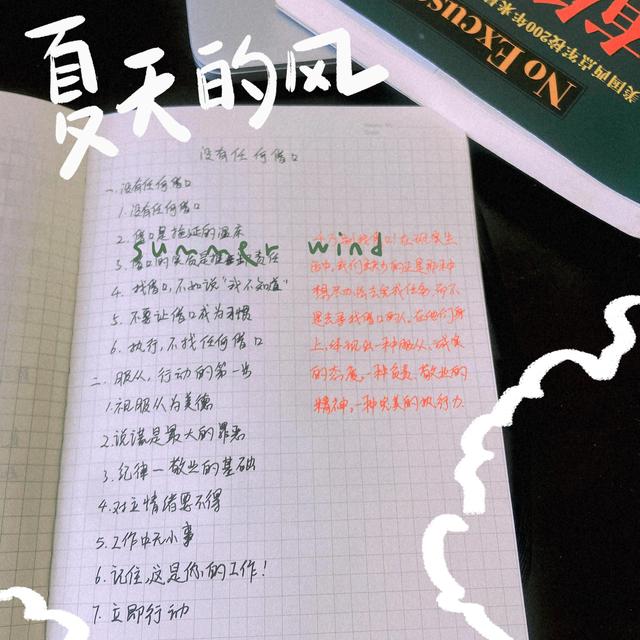 夏天的风
summer wind
No Excuse
美国西点军校200年来
没有任何借口
一、没有任何借口
1. 没有任何借口
2. 借口是拖延的温床
3. 借口的实质是推卸责任
4. 找借口,不如说"我不知道"
5. 不要让借口成为习惯
6. 执行,不找任何借口
二、服从,行动的第一步
1. 视服从为美德
2. 说谎是最大的罪恶
3. 纪律一敬业的基础
4. 对立情绪要不得
5. 工作中无小事
6. 记住,这是你的工作!
7. 立即行动
在现实生
活中,我们缺少的正是那种
想尽办法去完成任务,而不
是去寻找借口的人。在他们身
上,体现出一种服从、诚实
的态度,一种负责、敬业的
精神,一种完美的执行力